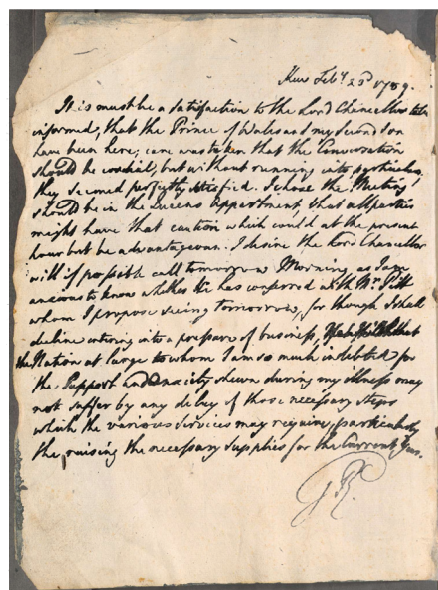 Kew Feby. 23d 1789.
It is must be a satisfaction to the Lord Chancellor to be
informed, that the Prince of Wales and my Second Son
have been here; care was taken that the Conversation
should be cordial, but without running into particulars,
they seemed perfectly satisfied. I chose the Meeting
should be in the Queens Appartment, that all parties
might have that caution which could at the present
hour but be advantageous. I desire the Lord Chancellor
will if possible call tomorrow Morning, as I am
anxious to know whether He has conferred with Mr. Pitt
whom I propose seeing tomorrow, for though I shall
decline entering into a pressure of business, that
the Nation at large to whom I am so much indebted for
the Support and anxiety shewn during my illness may
not suffer by any delay of those necessary steps
which the various Services may require, particularly
the raising the necessary supplies for the Current Year.
GR.